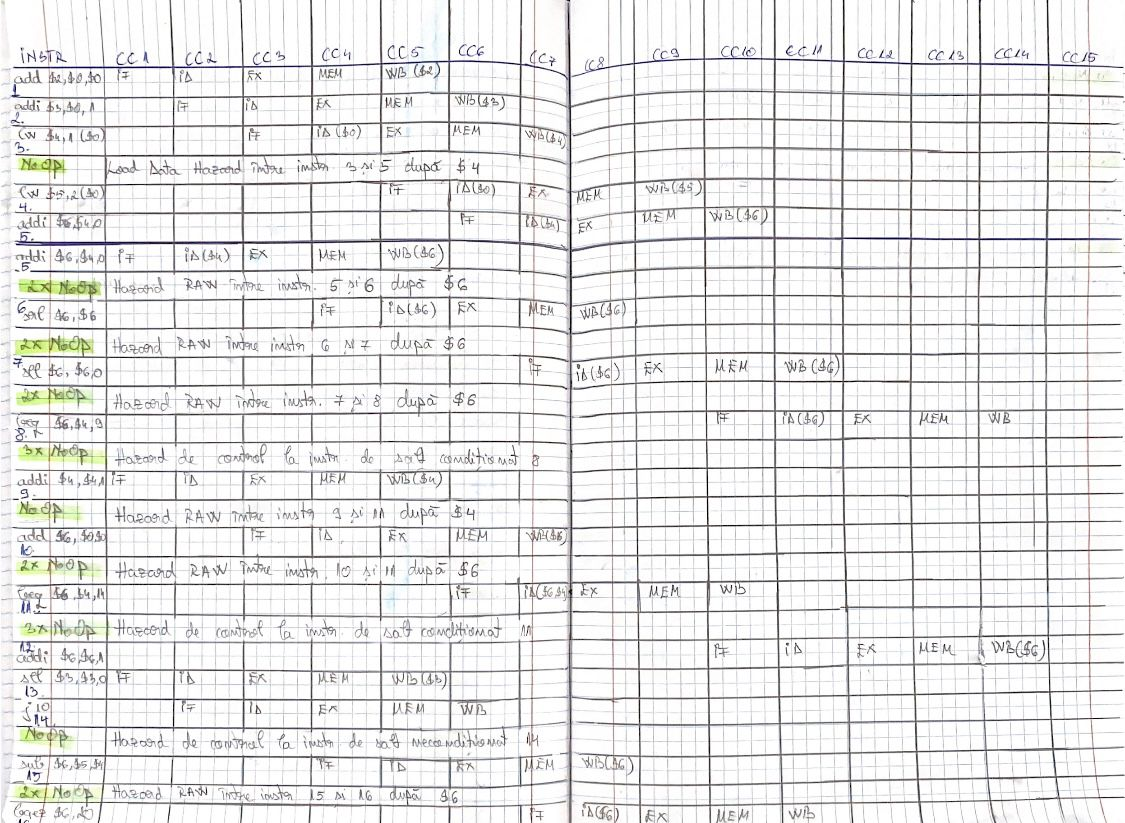 INSTR CC1 CC2 CC3 CC4 CC5 CC6 CC7 CC8 CC9 CC10 CC11 CC12 CC13 CC14 CC15
add $2,$0,$0 IF ID EX MEM WB ($2)
1
addi $3,$0,1 IF ID EX MEM WB($3)
2.
lw $4,1($0) IF ID($0) EX MEM WB($4)
3.
NoOp Load Data Hazard între instr. 3 și 5 după $4
lw $5,2($0) IF ID($0) EX MEM WB($5)
4.
addi $6,$4,0 IF ID($4) EX MEM WB($6)
5.
addi $6,$4,0 IF ID($4) EX MEM WB($6)
5
2x NoOp Hazard RAW între instr. 5 și 6 după $6
6 $6,$6 IF ID($6) EX MEM WB($6)
2x NoOp Hazard RAW între instr 6 și 7 după $6
7 sll $6,$6,0 IF ID($6) EX MEM WB($6)
2x NoOp Hazard RAW între instr. 7 și 8 după $6
beq $6,$4,9 IF ID($6) EX MEM WB
8.
3x NoOp Hazard de control la instr. de salt condiționat 8
addi $4,$4,1 IF ID EX MEM WB($4)
9.
NoOp Hazard RAW între instr 9 și 11 după $4
add $6,$0,$0 IF ID EX MEM WB($6)
10.
2x NoOp Hazard RAW între instr. 10 și 11 după $6
beq $6,$4,14 IF ID($6,$4) EX MEM WB
11.
3x NoOp Hazard de control la instr. de salt condiționat 11
12 addi $6,$6,1 IF ID EX MEM WB($6)
sll $3,$3,0 IF ID EX MEM WB($3)
13.
j 10 IF ID EX MEM WB
14.
NoOp Hazard de control la instr de salt necondiționat 14
sub $6,$5,$4 IF ID EX MEM WB($6)
15
2x NoOp Hazard RAW între instr 15 și 16 după $6
bgez $6,20 IF ID($6) EX MEM WB